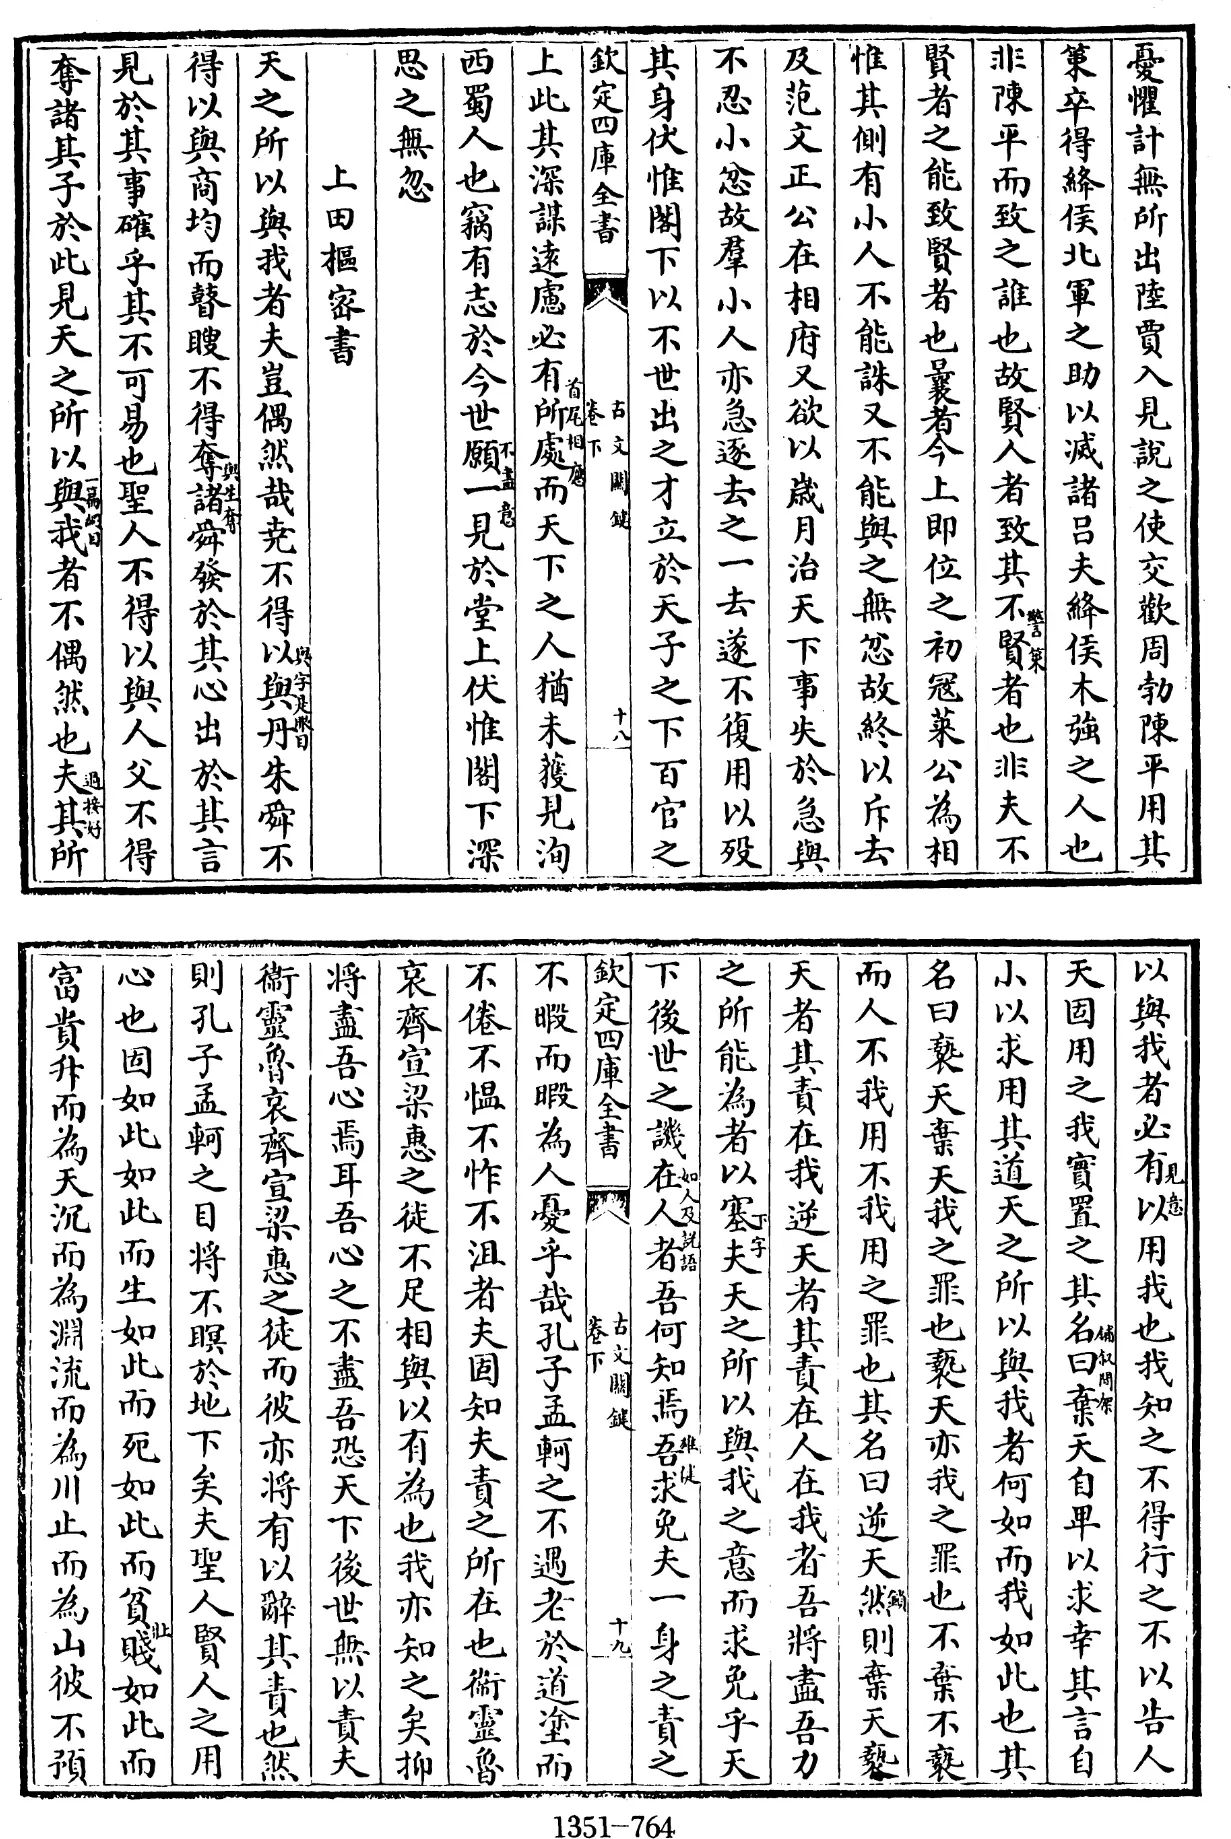 憂懼計無所出陸賈入見說之使交歡周勃陳平用其
策卒得絳侯北軍之助以滅諸呂夫絳侯木強之人也
非陳平而致之誰也故賢人者致其不賢者也非夫不
警策
賢者之能致賢者也曩者今上即位之初冦萊公為相
惟其側有小人不能誅又不能與之無忿故終以斥去
及范文正公在相府又欲以嵗月治天下事失於急與
不忍小忿故羣小人亦急逐去之一去遂不復用以殁
其身伏惟閣下以不世出之才立於天子之下百官之
欽定四庫全書
古文關鍵
卷下
十八
上此其深謀逺慮必有所處而天下之人猶未獲見洵
首尾相應
西蜀人也竊有志於今世願一見於堂上伏惟閣下深
不盡意
思之無忽
上田樞宻書
天之所以與我者夫豈偶然哉堯不得以與丹朱舜不
與字是眼目
得以與商均而瞽瞍不得奪諸舜發於其心出於其言
與生奪
見於其事確乎其不可易也聖人不得以與人父不得
奪諸其子於此見天之所以與我者不偶然也夫其所
一篇綱目
過接好
以與我者必有以用我也我知之不得行之不以告人
見意
天固用之我實置之其名曰棄天自卑以求幸其言自
鋪叙間架
小以求用其道天之所以與我者何如而我如此也其
名曰褻天棄天我之罪也褻天亦我之罪也不棄不褻
而人不我用不我用之罪也其名曰逆天然則棄天褻
鎖
天者其責在我逆天者其責在人在我者吾將盡吾力
之所能為者以塞夫天之所以與我之意而求免乎天
下字
下後世之譏在人者吾何知焉吾求免夫一身之責之
如人及説語
雄健
欽定四庫全書
古文關鍵
卷下
十九
不暇而暇為人憂乎哉孔子孟軻之不遇老於道塗而
不倦不愠不怍不沮者夫固知夫責之所在也衞靈魯
哀齊宣梁惠之徒不足相與以有為也我亦知之矣抑
將盡吾心焉耳吾心之不盡吾恐天下後世無以責夫
衞靈魯哀齊宣梁惠之徒而彼亦將有以辭其責也然
則孔子孟軻之目將不瞑於地下矣夫聖人賢人之用
心也固如此如此而生如此而死如此而貧賤如此而
壯
富貴升而為天沉而為淵流而為川止而為山彼不預
1351-764